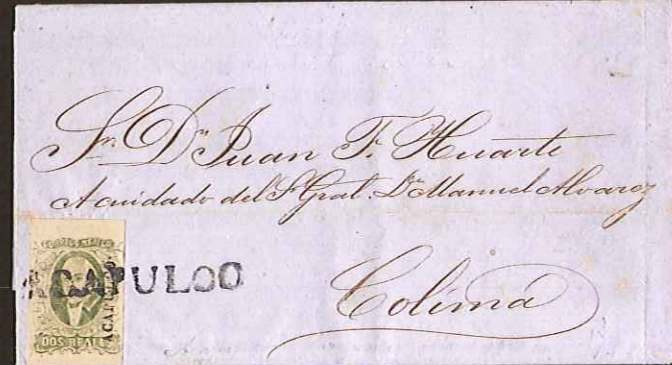 Sr. Dn. Juan F. Huarte
A cuidado del Sr. Gral. Dn. Manuel Alvarez
Colima
CORREOS MEJICO
ACAPULCO
ACAPULCO
DOS REALES